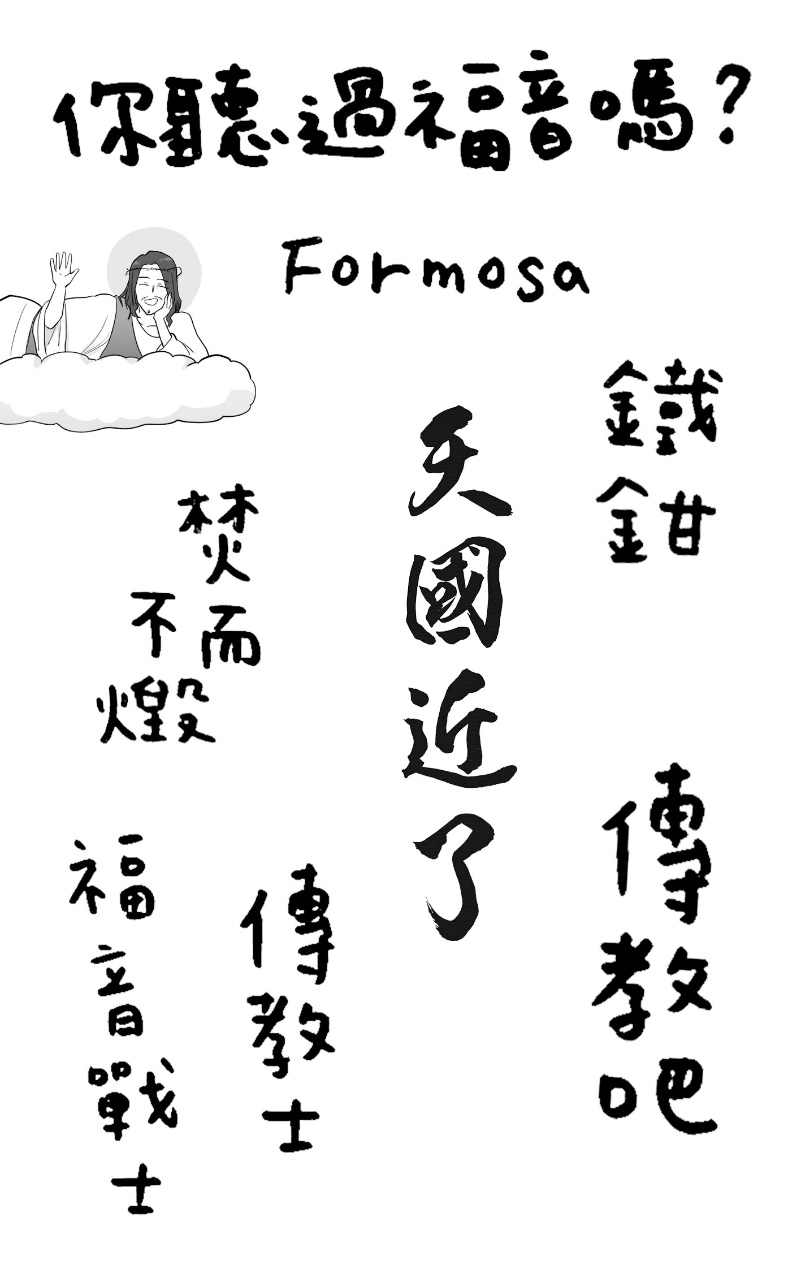 你聽過福音嗎?
Formosa
鐵鉗
天國近了
焚而
不燬
傳教吧
傳教士
福音戰士